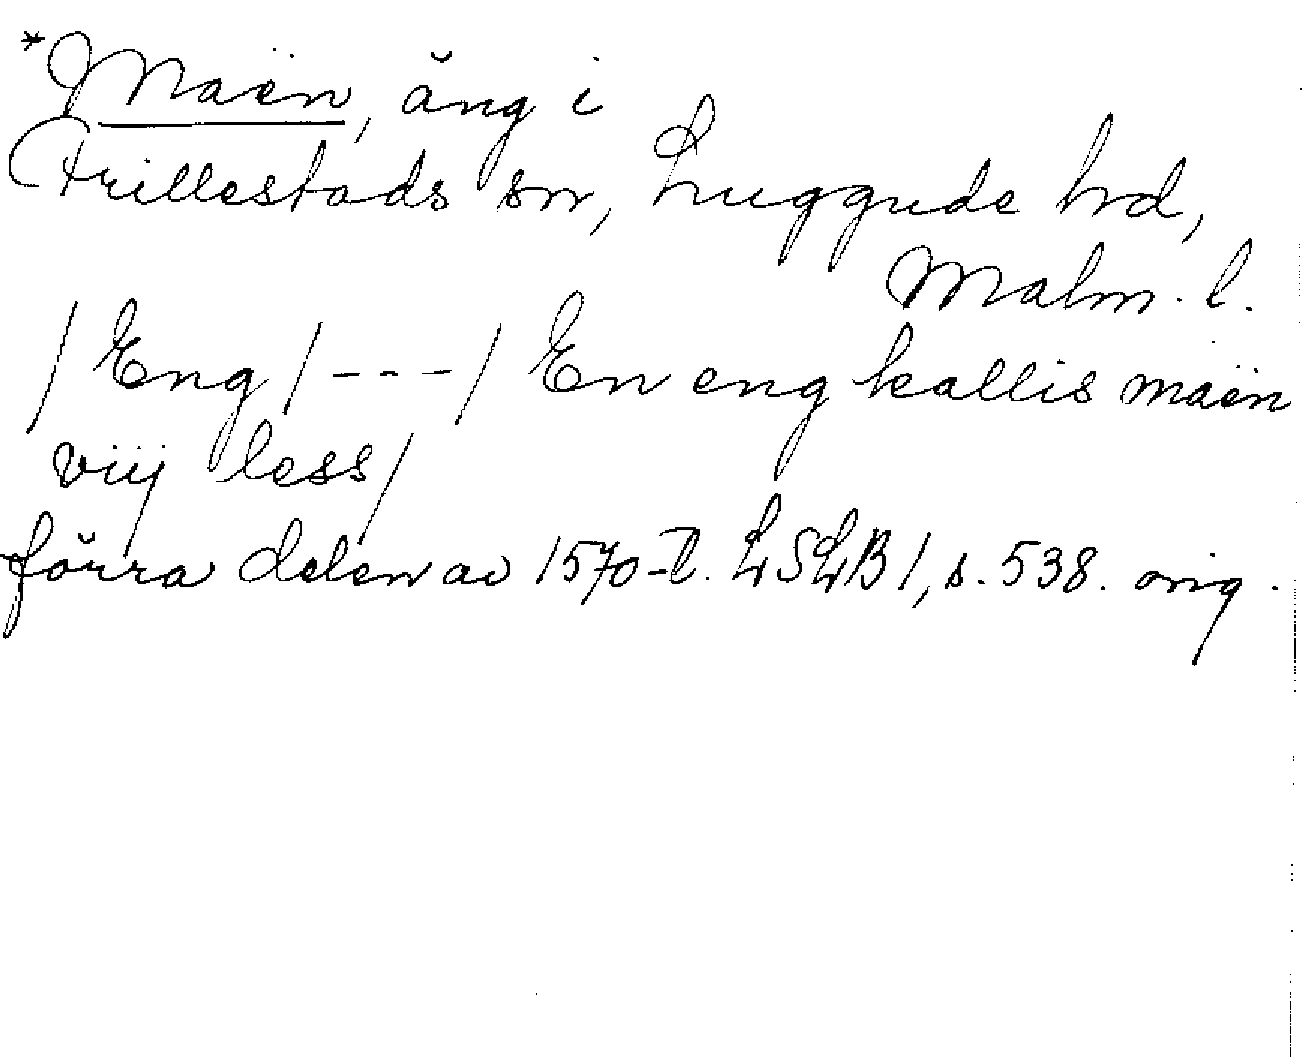 *Maën, äng i
Frillestads sn, Luggude hd,
Malm. l.
/Eng/---/En eng kallis maën
viij less/
förra delen av 1570-t. LSLB 1, s. 538. orig.